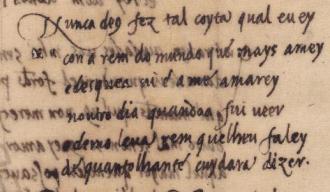 Nunca deg fez tal coyta qual eu ey
con a rem do mundo que mays amey
e desquea ui e ame amarey
noutro dia quandoa fui ueer
o demo leua rem quelheu faley
de quanto lhante cuydara dizer.